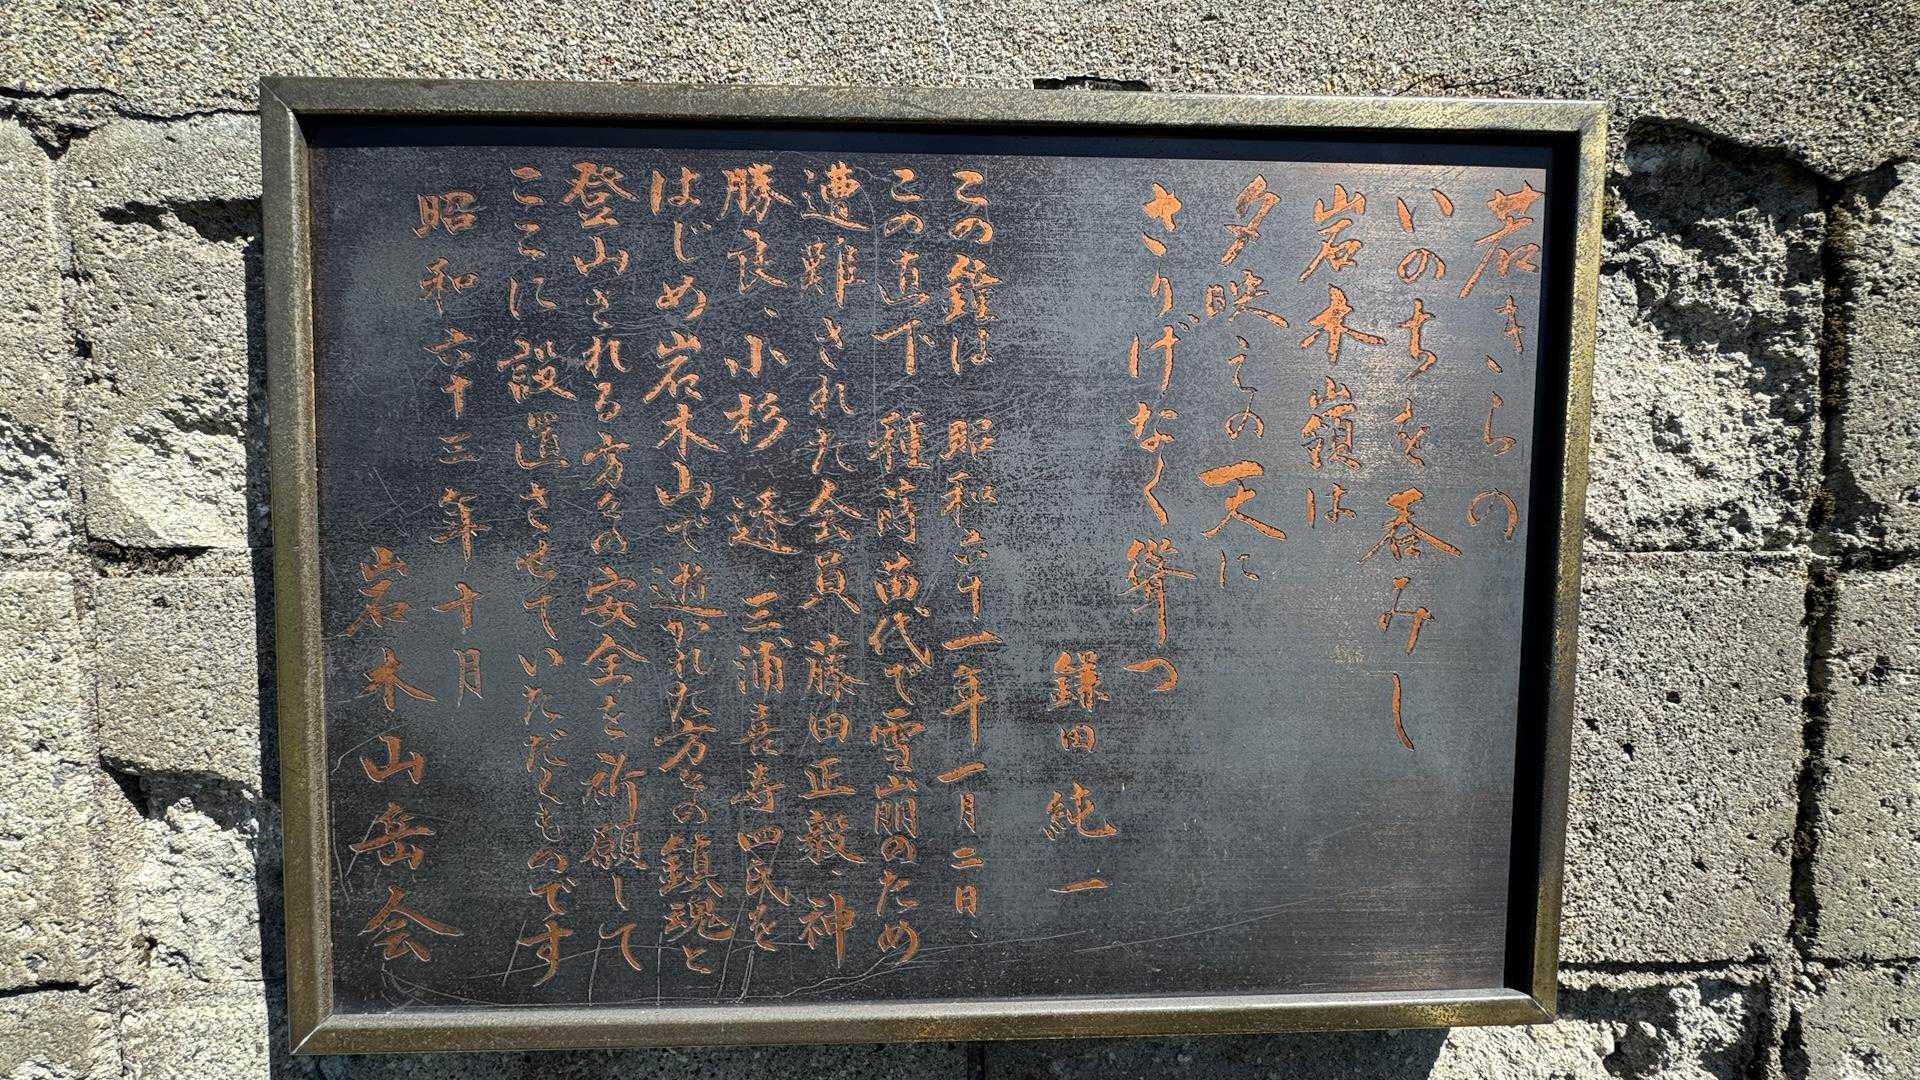 若きらの
いのちを呑みし
岩木嶺は
夕映えの天に
さりげなく聳つ
鎌田純一
この鐘は昭和六十一年一月二日、
この直下種蒔苗代で雪崩のため
遭難された会員藤田正毅、神
勝良、小杉透、三浦喜寿四氏を
はじめ岩木山で逝かれた方々の鎮魂と
登山される方々の安全を祈願して
ここに設置させていただくものです
昭和六十三年十月
岩木山岳会